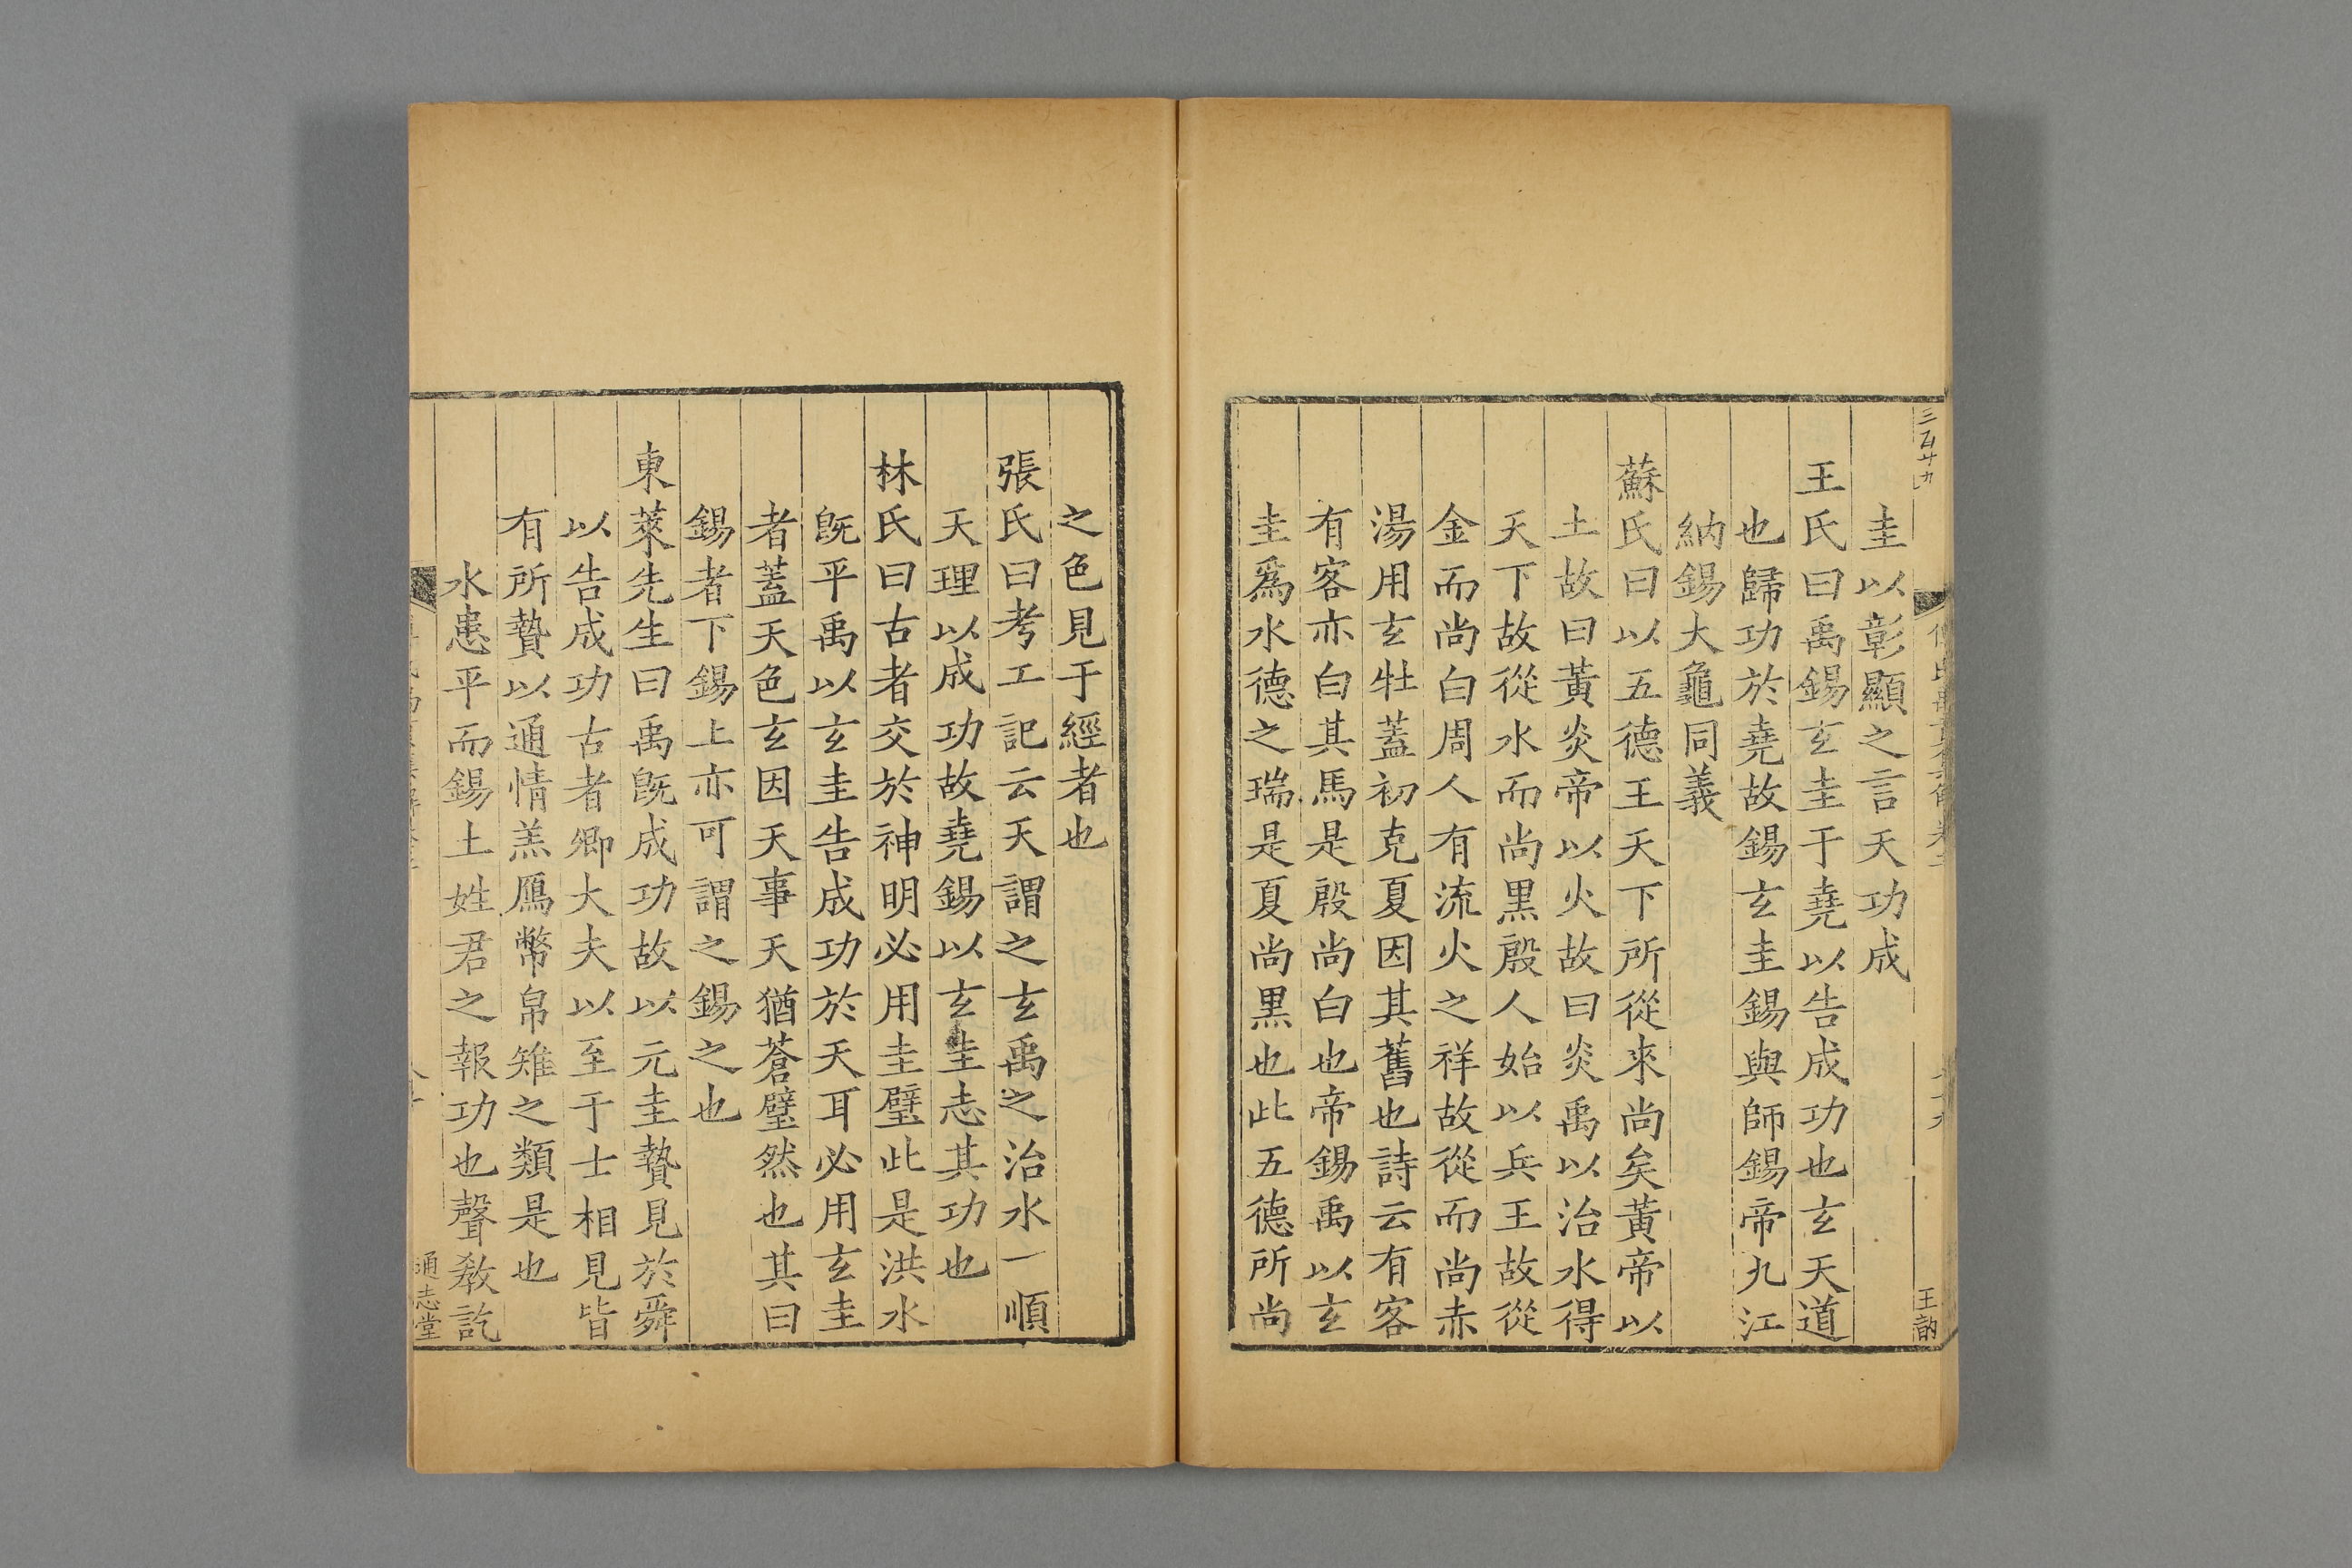 三百廿九
王訥
圭以彰顯之言天功成
王氏曰禹錫玄圭于堯以告成功也玄天道
也歸功於堯故錫玄圭錫與師錫帝九江
納錫大龜同義
蘇氏曰以五德王天下所從來尚矣黃帝以
土故曰黃炎帝以火故曰炎禹以治水得
天下故從水而尚黑殷人始以兵王故從
金而尚白周人有流火之祥故從而尚赤
湯用玄牡蓋初克夏因其舊也詩云有客
有客亦白其馬是殷尚白也帝錫禹以玄
圭爲水德之瑞是夏尚黑也此五德所尚
之色見于經者也
張氏曰考工記云天謂之玄禹之治水一順
天理以成功故堯錫以玄圭志其功也
林氏曰古者交於神明必用圭璧此是洪水
旣平禹以玄圭告成功於天耳必用玄圭
者蓋天色玄因天事天猶蒼璧然也其曰
錫者下錫上亦可謂之錫之也
東萊先生曰禹旣成功故以元圭贄見於舜
以告成功古者卿大夫以至于士相見皆
有所贄以通情羔鴈幣帛雉之類是也
水患平而錫土姓君之報功也聲敎訖
通志堂